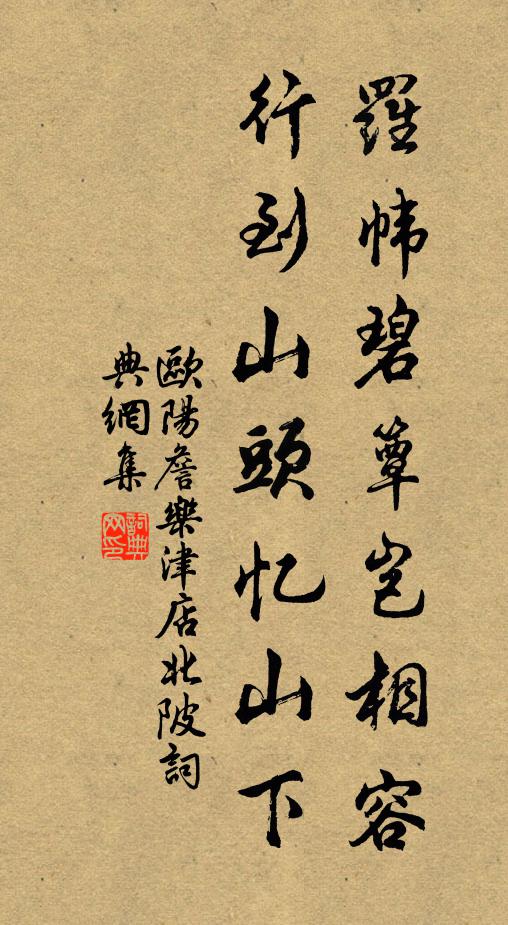 羅幃碧簟豈相容
行到山頭忆山下
歐陽詹樂津店北陂詞
典網集
詞典网印